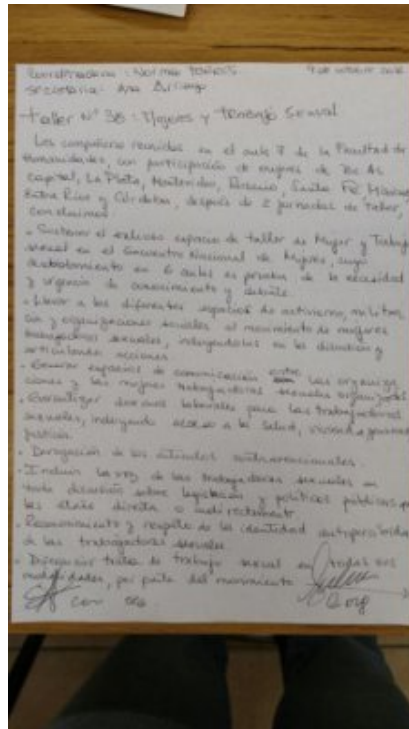 Coordinadora: Norma
Secretaria: Ana
Taller N° 38: Mujeres y Trabajo Sexual
Las compañeras reunidas en el aula 7 de la Facultad de
Humanidades, con participación de mujeres de Bs As
capital, La Plata, Montevideo, Rosario, Santa Fe,
Entre Rios y Córdoba, después de 2 jornadas de Taller,
concluimos
• Sostener el exitoso espacio de taller de Mujer y Trabajo
sexual en el Encuentro Nacional de Mujeres, cuyo
desdoblamiento en 6 aulas es prueba de la necesidad
y urgencia de conocimiento y debate.
• Llevar a los diferentes espacios de activismo,
y organizaciones sociales al movimiento de mujeres
trabajadoras sexuales, incluyendolas en las discusiones y
articulando acciones
• Generar espacios de comunicación entre las organiza
ciones y las mujeres trabajadoras sexuales organizadas
• Garantizar derechos laborales para las trabajadoras
sexuales, incluyendo acceso a la salud, vivienda y
justicia.
• Derogación de los artículos contravencionales.
• Incluir la voz de las trabajadoras sexuales en
toda discusión sobre legislación y políticas públicas
las directa o indirectamente
• Reconocimiento y respeto de la identidad autopercibida
de las trabajadoras sexuales
• Diferenciar trata de trabajo sexual en todas sus
modalidades, por parte del movimiento